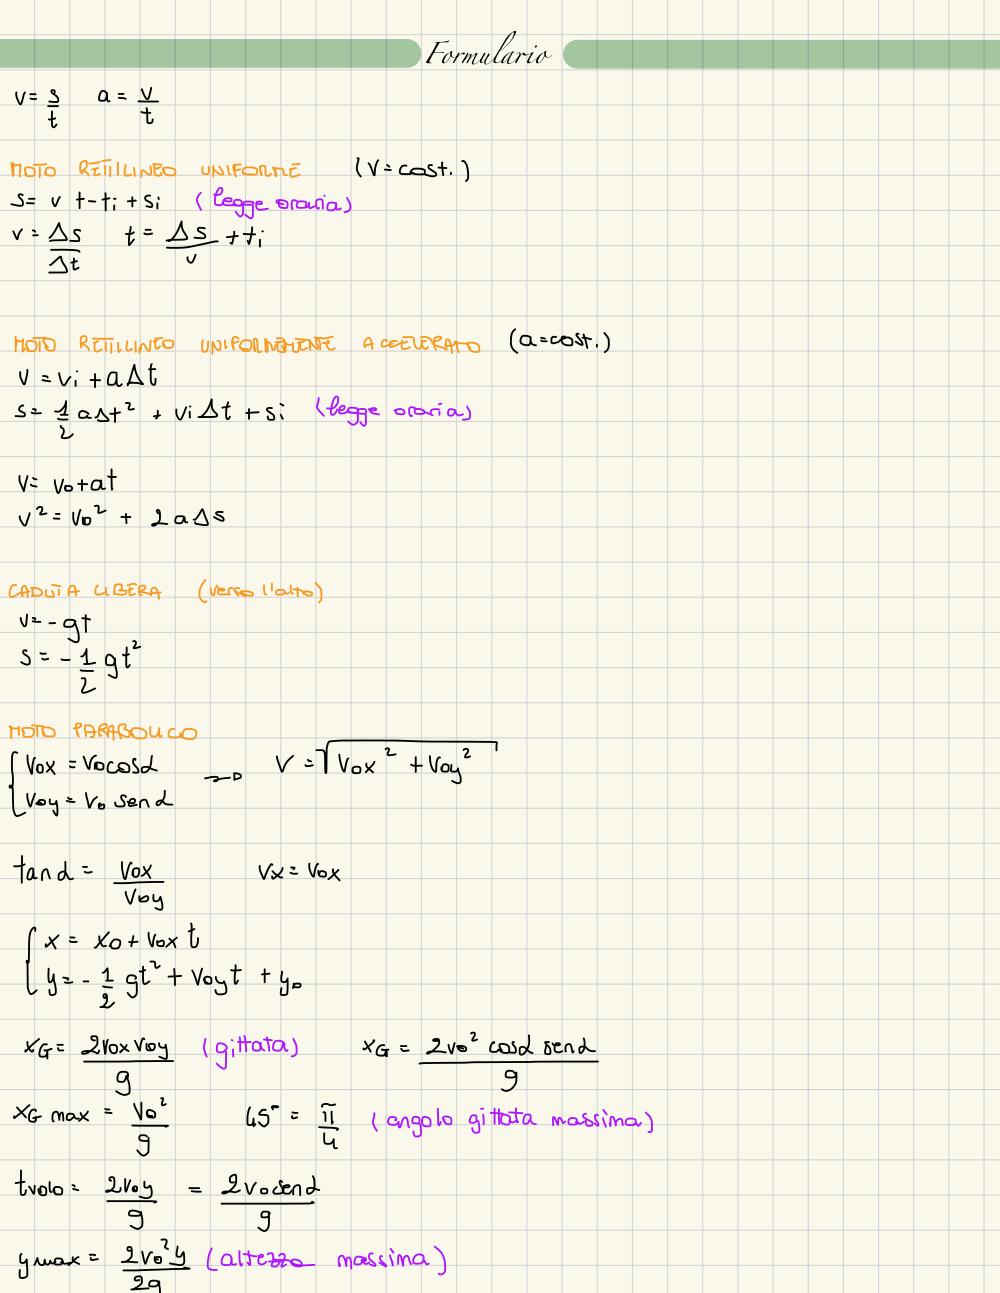 Formulario
v = s/t a = v/t
MOTO RETTILINEO UNIFORME (V = cost.)
s = v t - ti + si (legge oraria)
v = Δs/Δt t = Δs/v + ti
MOTO RETTILINEO UNIFORMEMENTE ACCELERATO (a = cost.)
v = vi + aΔt
s = 1/2 aΔt² + viΔt + si (legge oraria)
v = v0 + at
v² = v0² + 2aΔs
CADUTA LIBERA (verso l'alto)
v = -gt
s = -1/2 gt²
MOTO PARABOLICO
{ v0x = v0 cosα → V = √(v0x² + v0y²)
v0y = v0 senα
tanα = v0x/v0y vx = v0x
{ x = x0 + v0x t
y = -1/2 gt² + v0y t + y0
xG = 2v0x v0y/g (gittata) xG = 2v0² cosα senα/g
xG max = v0²/g 45° = π/4 (angolo gittata massima)
tvolo = 2v0y/g = 2v0 senα/g
ymax = 2v0²y/2g (altezza massima)